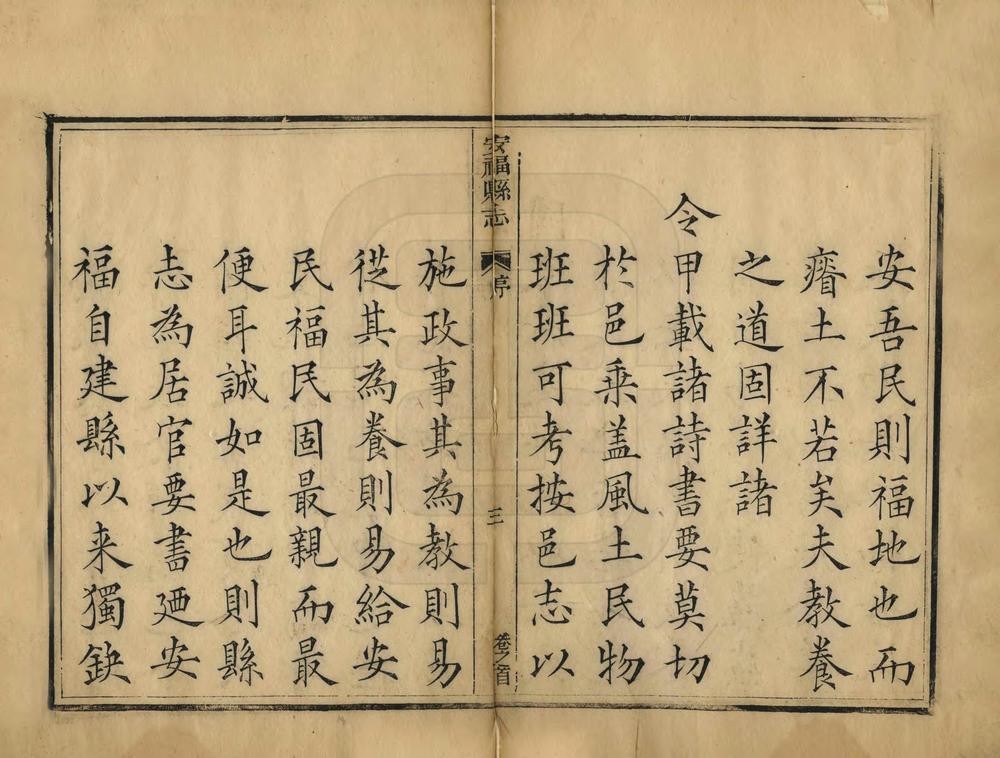 安吾民則福地也而
瘠土不若矣夫教養
之道固詳諸
令甲載諸詩書要莫切
於邑乗盖風土民物
班班可考按邑志以
安福縣志 序 三 卷之首
施政事其為教則易
從其為養則易給安
民福民固最親而最
便耳誠如是也則縣
志為居官要書廼安
福自建縣以来獨缺